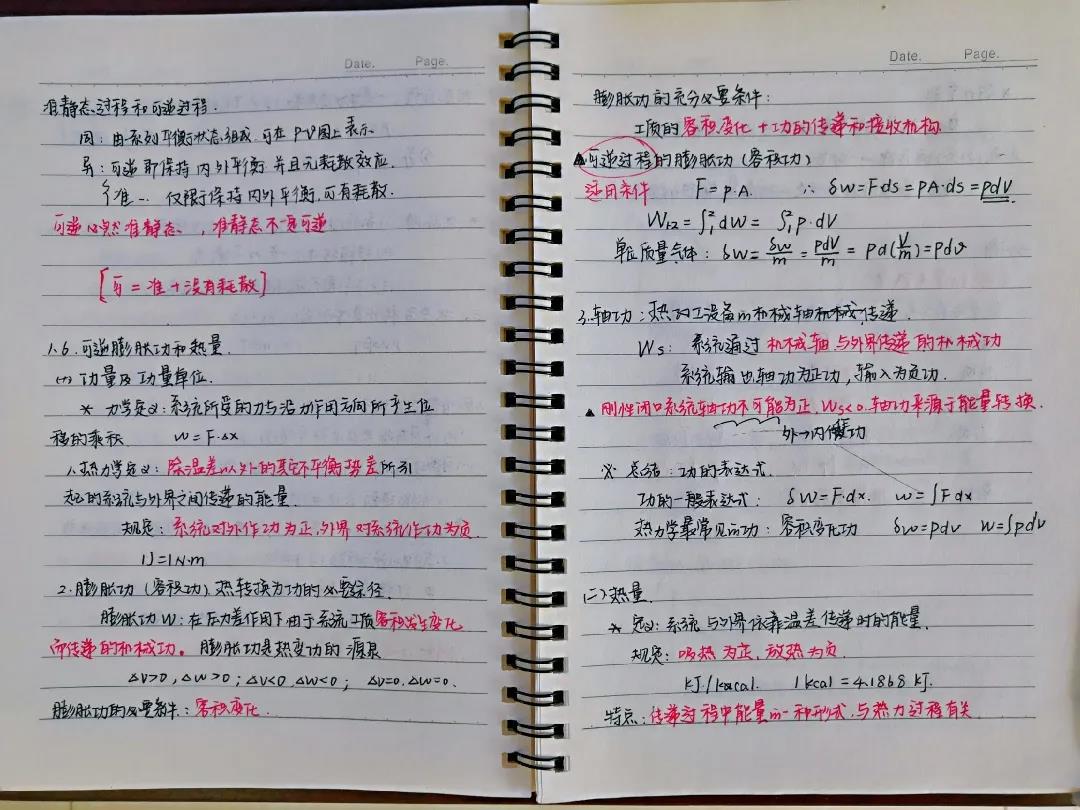 Date. Page.
准静态过程和可逆过程.
同: 由系列平衡状态组成.可在 P-V图上表示
异: 可逆即保持内外平衡 并且无耗散效应.
准一. 仅限于保持内外平衡,可有耗散.
可逆必然准静态、, 准静态不一定可逆
[可 = 准 + 没有耗散]
1.6.可逆膨胀功和热量.
(一) 功量及功量单位.
* 力学定义: 系统所受的力与沿力作用方向所产生位
移的乘积. w = F·Δx
1.热力学定义: 除温差以外的其它不平衡势差所引
起的系统与外界之间传递的能量.
规定: 系统对外作功为正,外界对系统作功为负.
1J=1N·m
2.膨胀功 (容积功) 热转换为功的必要途径.
膨胀功 W: 在压力差作用下由于系统工质容积发生变化
而传递的机械功。 膨胀功是热变功的源泉
ΔV>0,ΔW>0; ΔV<0,ΔW<0; ΔV=0.ΔW=0.
膨胀功的必要条件: 容积变化.
Date. Page.
膨胀功的充分必要条件:
工质的容积变化 + 功的传递和接收机构.
▲可逆过程的膨胀功 (容积功)
适用条件 F = p·A. ∴ δw=F·ds=PA·ds=pdV
W₁₂ = ∫₁²dW = ∫₁²p·dV
单位质量气体: δw = δw/m = pdV/m = Pd(V/m)=Pdv
3.轴功: 热力工设备m机械轴机械传递.
Ws: 系统通过机械轴与外界传递的机械功
系统输出轴功为正功,输入为负功.
▲ 刚性闭口系统轴功不可能为正,Ws<0.轴功来源于能量转换.
外→内做功
※ 总结: 功的表达式.
功的一般表达式: δw=F·dx. w=∫Fdx
热力学最常见m功: 容积变化功 δw=pdv w=∫pdv
(二)热量.
* 定义: 系统与外界依靠温差传递时的能量.
规定: 吸热为正,放热为负.
kJ/kcal. 1kcal = 4.1868 kJ.
特点: 传递过程中能量m一种形式,与热力过程有关.